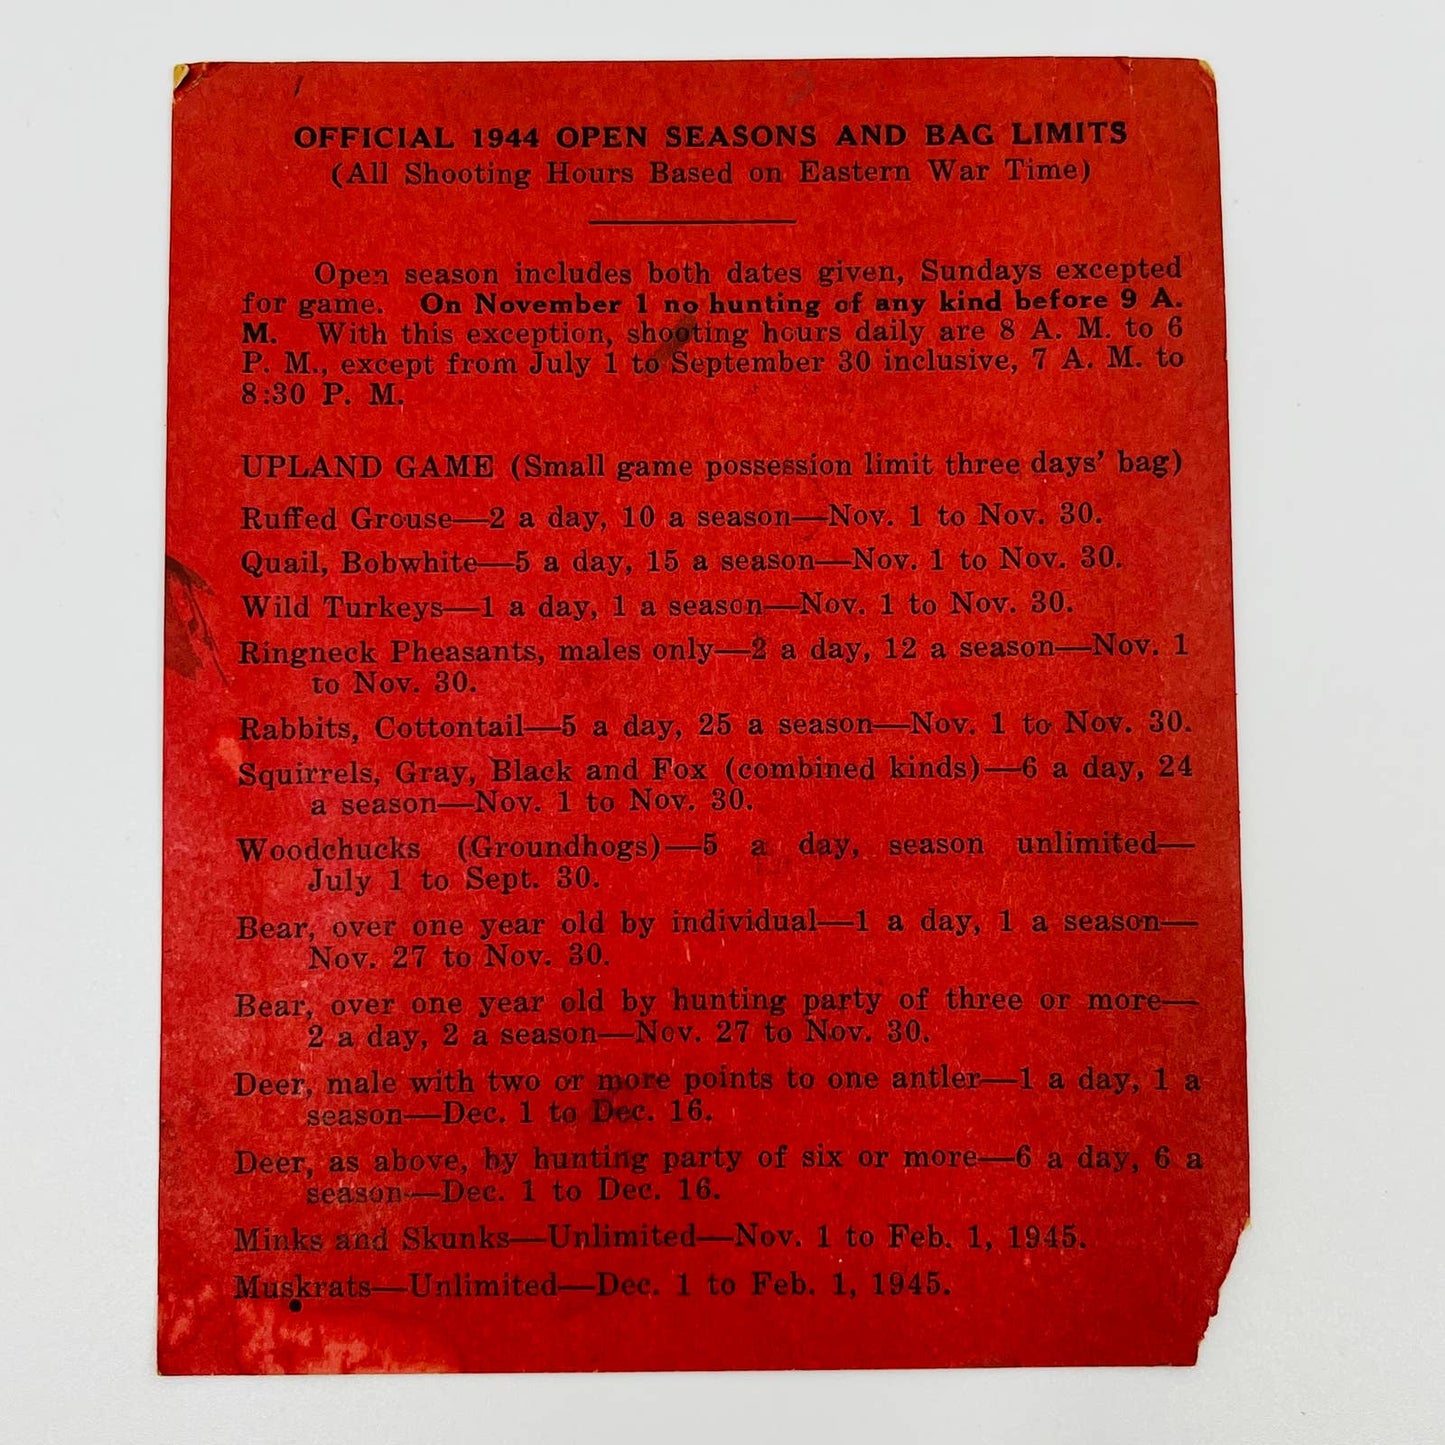 OFFICIAL 1944 OPEN SEASONS AND BAG LIMITS
(All Shooting Hours Based on Eastern War Time)
Open season includes both dates given, Sundays excepted
for game. On November 1 no hunting of any kind before 9 A.
M. With this exception, shooting hours daily are 8 A. M. to 6
P. M., except from July 1 to September 30 inclusive, 7 A. M. to
8:30 P. M.
UPLAND GAME (Small game possession limit three days' bag)
Ruffed Grouse—2 a day, 10 a season—Nov. 1 to Nov. 30.
Quail, Bobwhite—5 a day, 15 a season—Nov. 1 to Nov. 30.
Wild Turkeys—1 a day, 1 a season—Nov. 1 to Nov. 30.
Ringneck Pheasants, males only—2 a day, 12 a season—Nov. 1
to Nov. 30.
Rabbits, Cottontail—5 a day, 25 a season—Nov. 1 to Nov. 30.
Squirrels, Gray, Black and Fox (combined kinds)—6 a day, 24
a season—Nov. 1 to Nov. 30.
Woodchucks (Groundhogs)—5 a day, season unlimited—
July 1 to Sept. 30.
Bear, over one year old by individual—1 a day, 1 a season—
Nov. 27 to Nov. 30.
Bear, over one year old by hunting party of three or more—
2 a day, 2 a season—Nov. 27 to Nov. 30.
Deer, male with two or more points to one antler—1 a day, 1 a
season—Dec. 1 to Dec. 16.
Deer, as above, by hunting party of six or more—6 a day, 6 a
season—Dec. 1 to Dec. 16.
Minks and Skunks—Unlimited—Nov. 1 to Feb. 1, 1945.
Muskrats—Unlimited—Dec. 1 to Feb. 1, 1945.